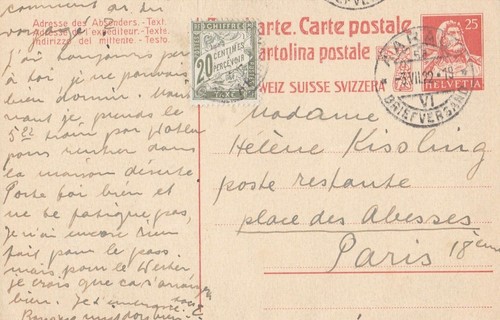 comment as du
voyagé?
Adresse des Absenders. - Text.
Adresse de l'expéditeur. - Texte.
Indirizzo del mittente. - Testo.
J'ai toujours pensé
à toi je ne pouvais
bien dormir.
je prends le
5.22 train por
pour rentrer dans
la maison déserte.
Porte toi bien et
ne te fatigue pas,
Je n'ai encore rien
fait pour le pass.
mais pour le
je crois que ça s'arrangera
bien. Je t'embrasse
arte. Carte postale
artolina postale
WEIZ SUISSE SVIZZERA
CHIFFRE
20 CENTIMES
À PERCEVOIR
TAXE
25
HELVETIA
VII.22-19
VI
BRIEFVERSAND
Madame
Hélène Kissling
poste restante
place des Abesses
Paris 18ème